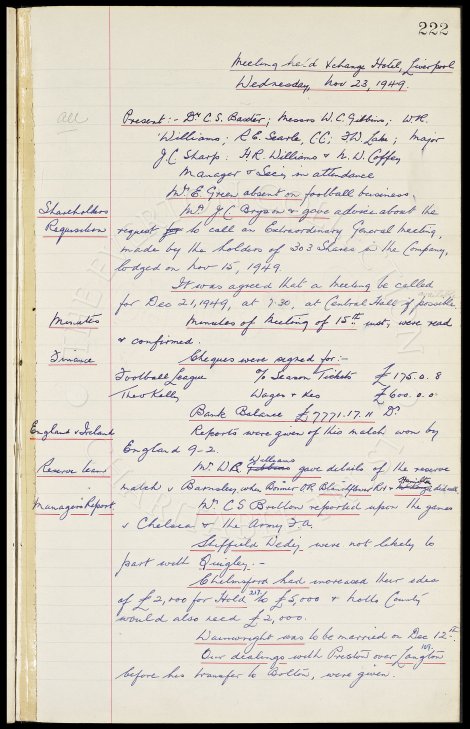 222
Meeting held Xchange Hotel, Liverpool
Wednesday, Nov 23, 1949.
all
Present:- Dr C.S. Baxter; Messrs W.C. Gibbins; W.R.
Williams; R.E. Searle, CC; F.W. Lake; Major
J.C Sharp: H.R. Williams & N. W. Coffey
Manager & Secy in attendance
Mr E. Green absent on football business.
Shareholders Mr J C Bryson gave advice about the
Requisition request to call an Extraordinary General Meeting,
made by the holders of 303 Shares in the Company,
lodged on Nov 15, 1949
It was agreed that a meeting be called
for Dec 21, 1949, at 7.30, at Central Hall if possible.
Minutes Minutes of Meeting of 15th inst, were read
& confirmed.
Finance Cheques were signed for:-
Football League % Season Tickets £175.0.8
Theo Kelly Wages & Exs £600.0.0
Bank Balance £7771.17.11 Dr
England v Ireland Reports were given of this match won by
England 9-2.
Reserve team Mr W R Williams gave details of the reserve
match v Barnsley, when
Managers Report Mr C S Britton reported upon the games
v Chelsea & the Army F.A.
Sheffield Wedy were not likely to
part with Quigley. -
Chelmsford had increased their idea
of £2,100 for Hold to £5,000 & Notts County
would also need £2,000.
Wainwright was to be married on Dec 12th.
Our dealings with Preston over Langton
before his transfer to Bolton, were given.